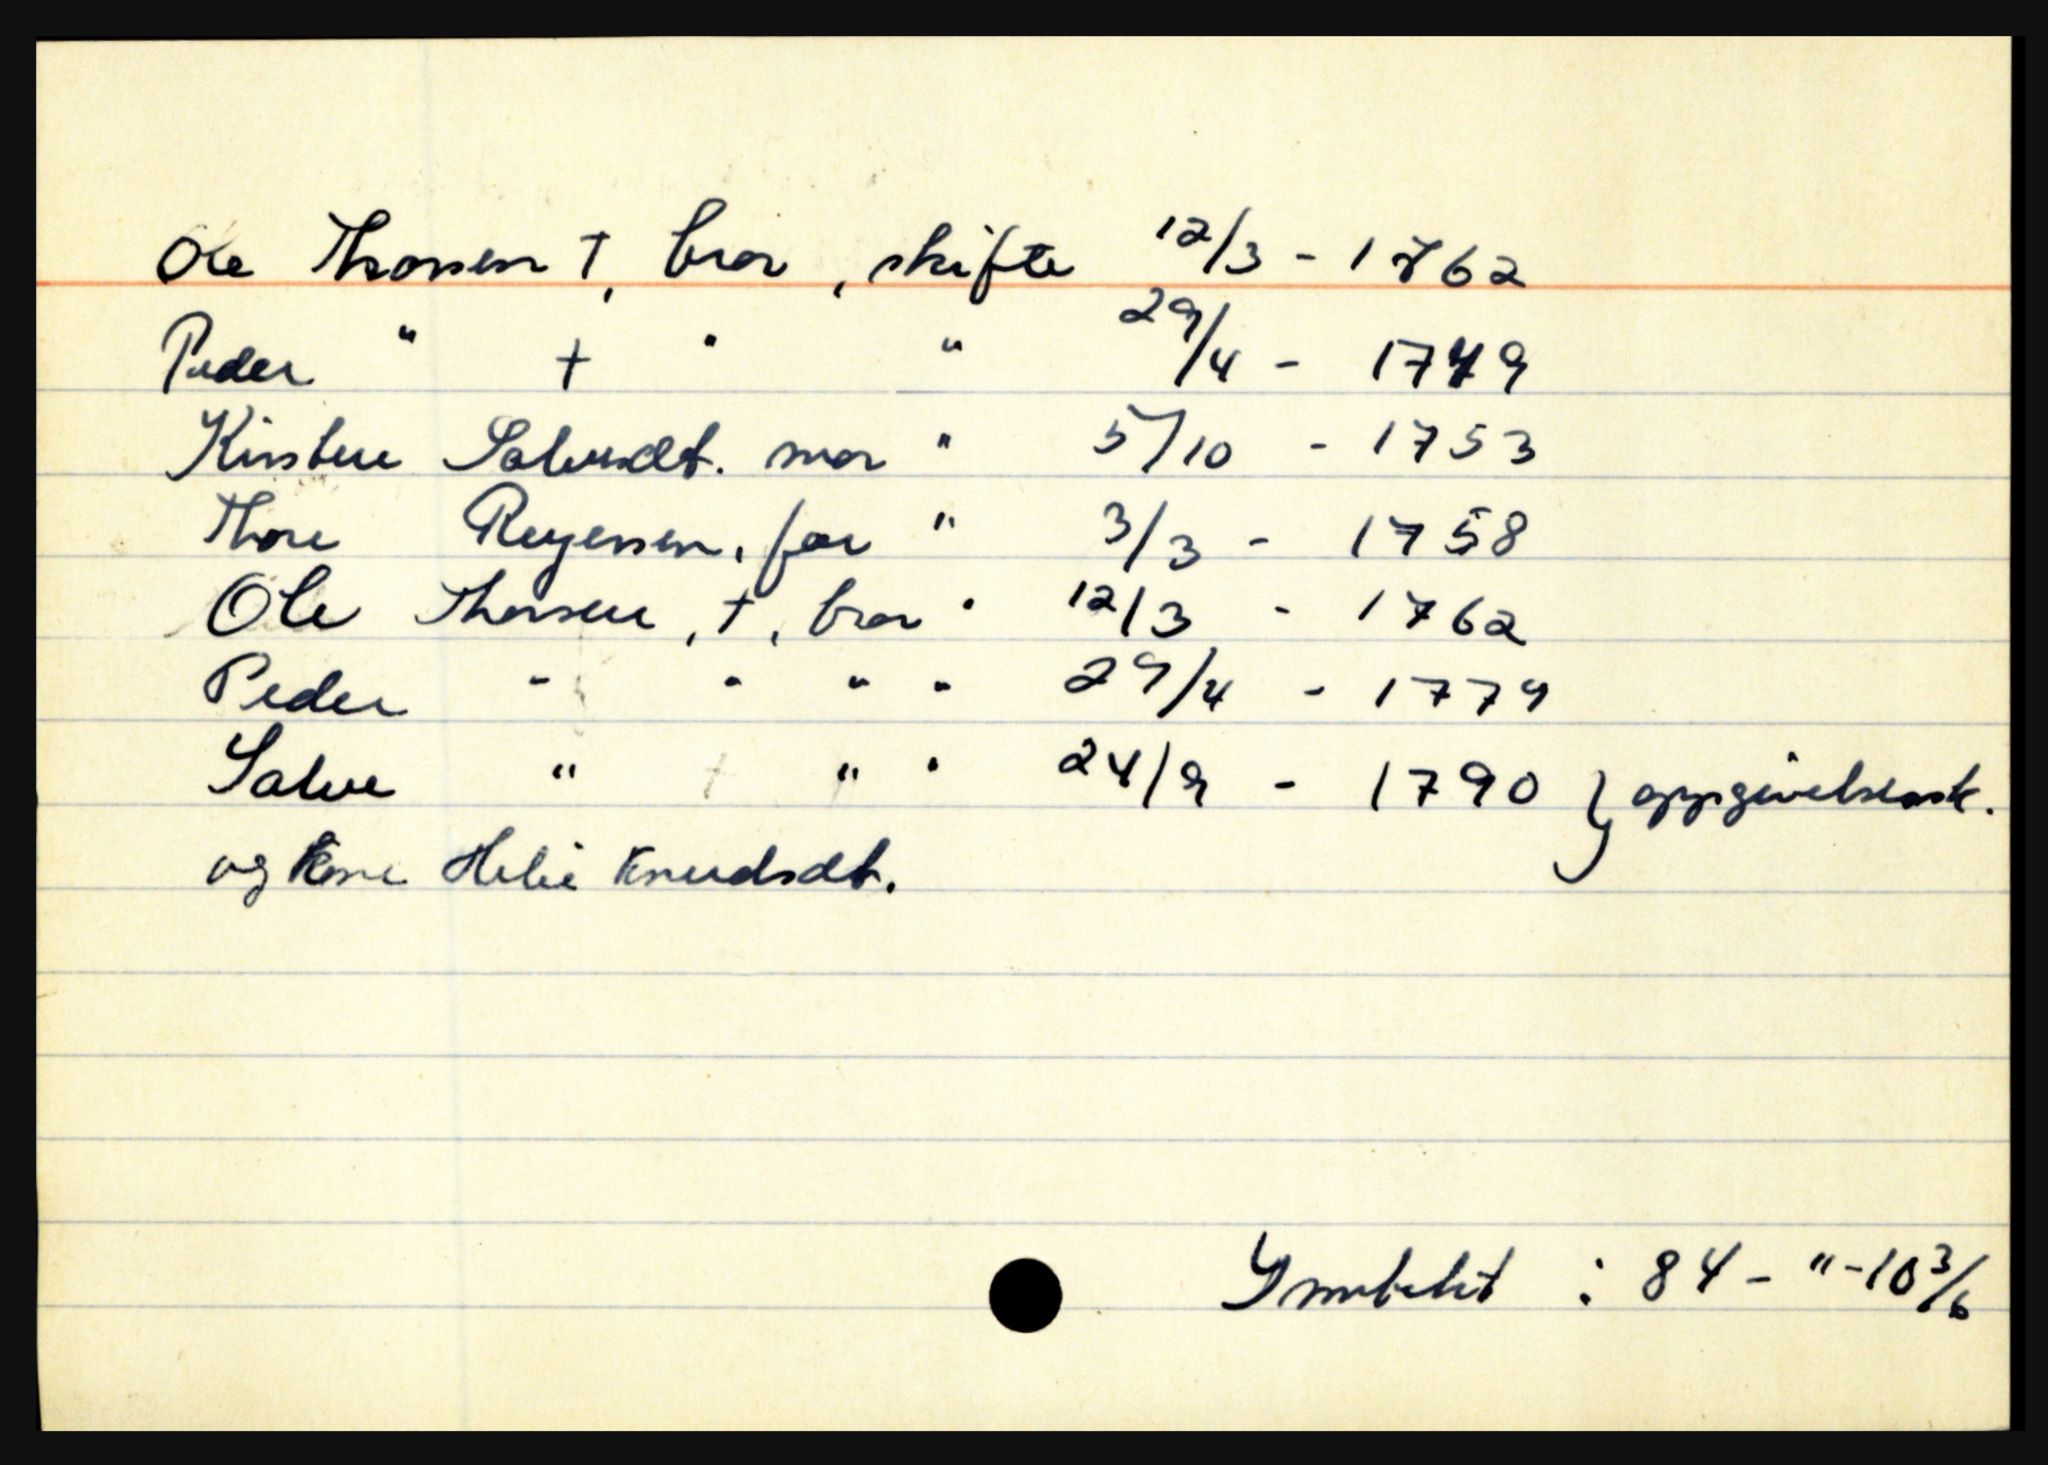 Ole Thorssen †, bror, skifte 12/3 - 1762
Peder " † " " 29/4 - 1779
Kirstene Salvesdt. mor " 5/10 - 1753
Thore Reyerssen, far " 3/3 - 1758
Ole Thorssen, †, bror " 12/3 - 1762
Peder " " " " 29/4 - 1779
Salve " † " " 24/9 - 1790 } oppgivelsessk.
og kone Helie Knudsdt.
: 84 - " - 10 3/6